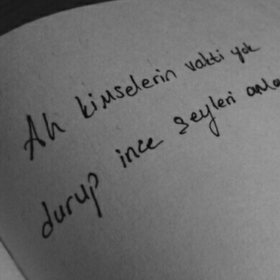 Ah kimselerin vakti yok
durup ince şeyleri